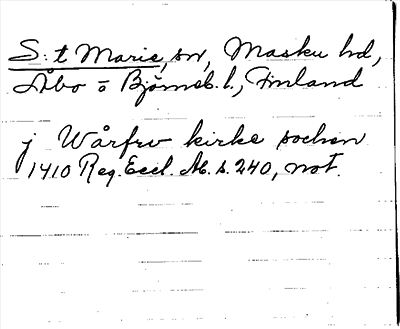 S:t Marie, sn, Masku hd,
Åbo o Björneb. l., Finland
j Wårfrv kirke sochen
1410 Reg. Eccl. Ab. s. 240, not.